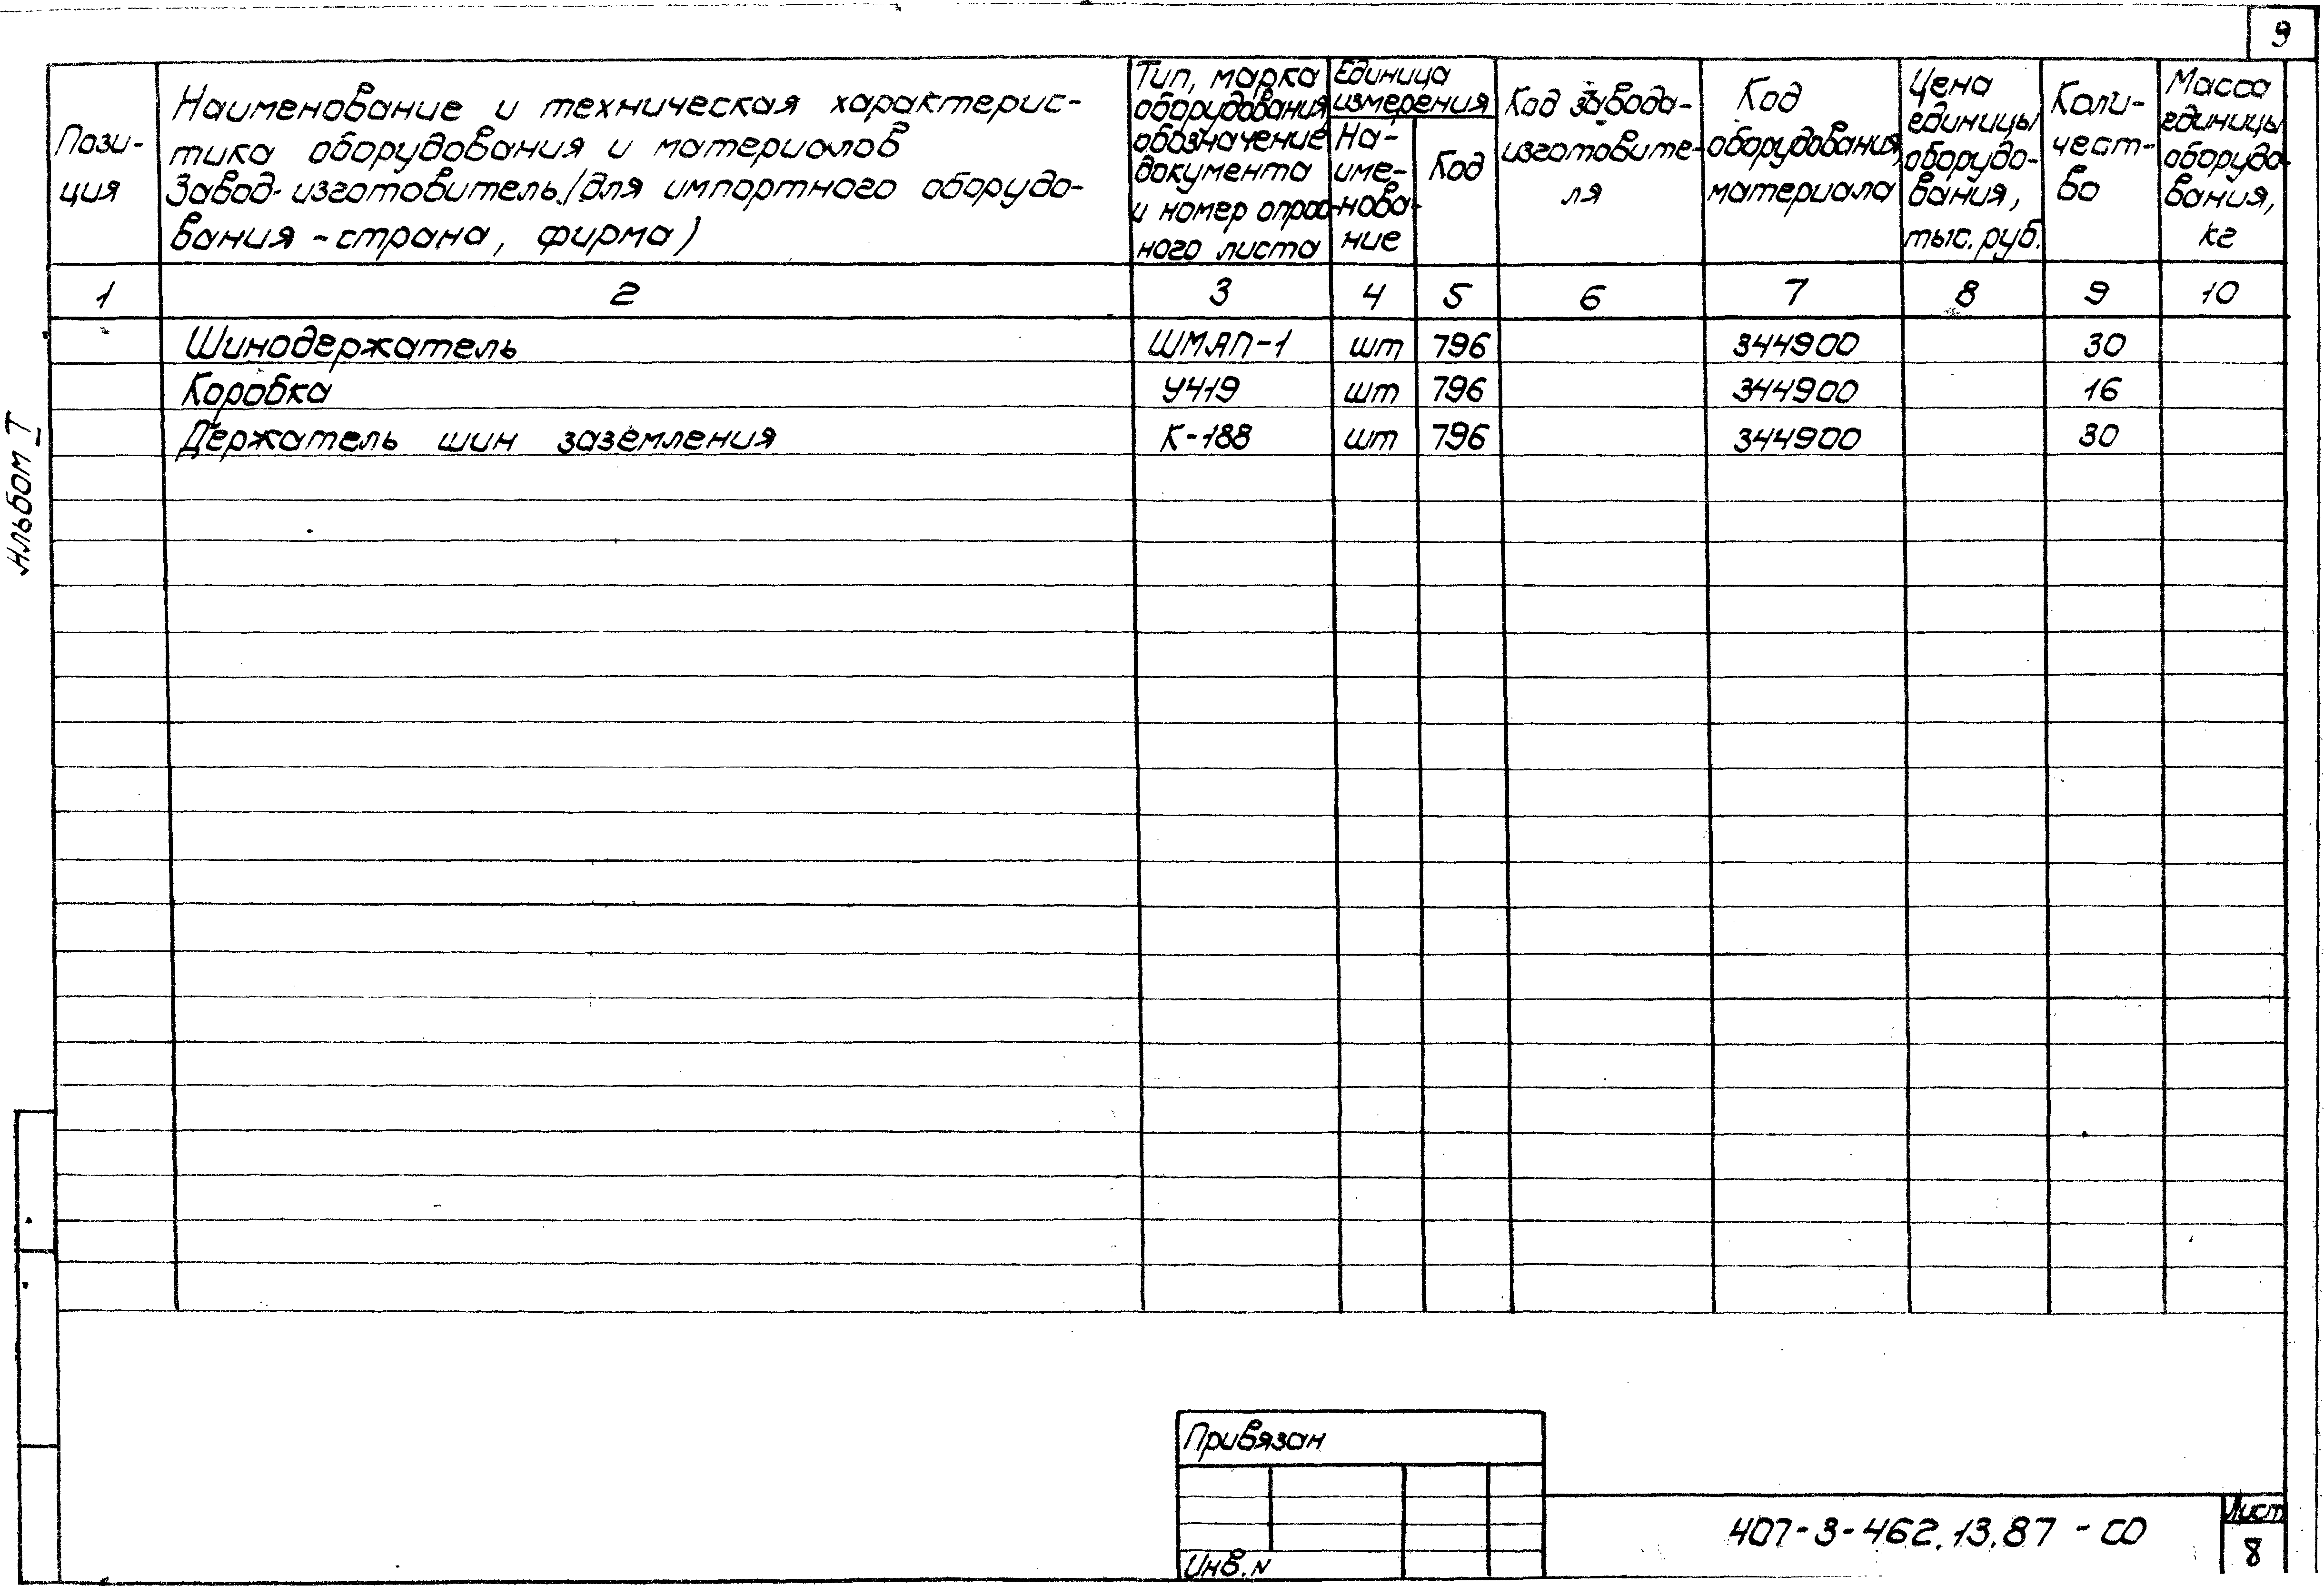 9
Пози-
ция
Наименование и техническая характерис-
тика оборудования и материалов
Завод-изготовитель/для импортного оборудо-
вания - страна, фирма)
Тип, марка
оборудования,
обозначение
документа
и номер опрос-
ного листа
Единица
измерения
На-
име-
нова-
ние
Код
Код завода-
изготовите-
ля
Код
оборудования,
материала
Цена
единицы
оборудо-
вания,
тыс. руб.
Коли-
чест-
во
Масса
единицы
оборудо-
вания,
кг
1 2 3 4 5 6 7 8 9 10
Шинодержатель ШМАП-1 шт 796 344900 30
Коробка У419 шт 796 344900 16
Держатель шин заземления К-188 шт 796 344900 30
Альбом I
Привязан
Инв. N
407-3-462.13.87 - СО
Лист
8